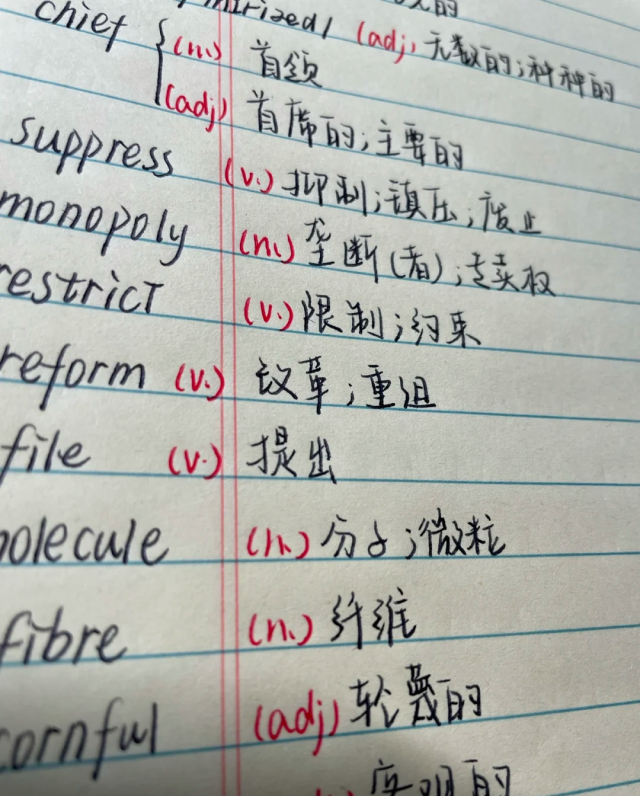 (adj) 无数的;种种的
chief (n.) 首领
(adj) 首席的;主要的
suppress (v.) 抑制;镇压;废止
monopoly (n.) 垄断(者);专卖权
restrict (v.) 限制;约束
reform (v.) 改革;重组
file (v.) 提出
olecule (n.) 分子;微粒
fibre (n.) 纤维
cornful (adj) 轮蔑的
的